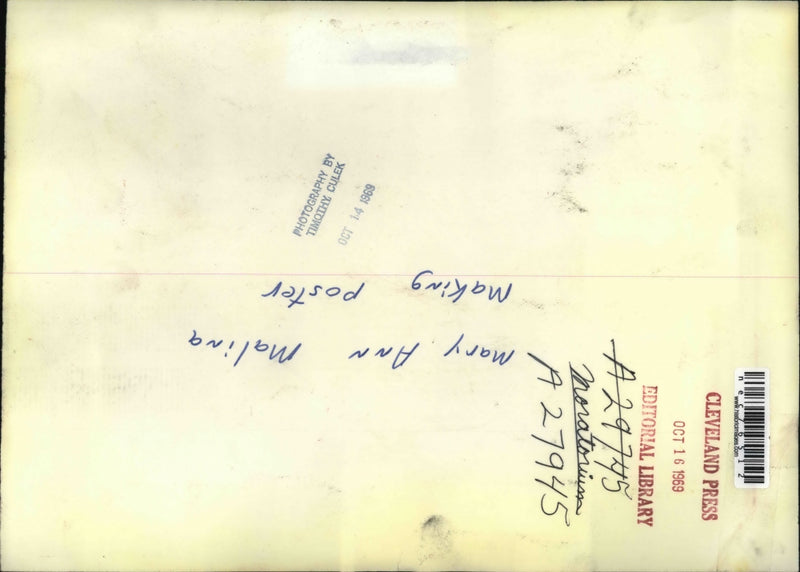 PHOTOGRAPHY BY
TIMOTHY CULEK
OCT 14 1969
Mary Ann Malina
Making poster
A 29745
Moratorium
A 27945
CLEVELAND PRESS
OCT 16 1969
EDITORIAL LIBRARY
www.historicimages.com